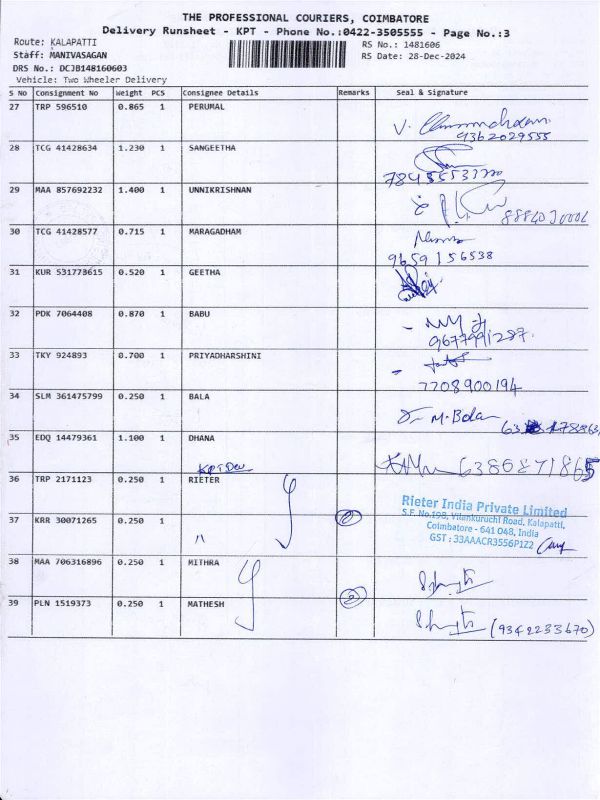 THE PROFESSIONAL COURIERS, COIMBATORE
Delivery Runsheet - KPT - Phone No.:0422-3505555 - Page No.:3
Route: KALAPATTI
RS No.: 1481606
Staff: MANIVASAGAN
RS Date: 28-Dec-2024
DRS No.: DCJB148160603
Vehicle: Two Wheeler Delivery
S No Consignment No Weight PCS Consignee Details Remarks Seal & Signature
27 TRP 596510 0.865 1 PERUMAL
9362029555
28 TCG 41428634 1.230 1 SANGEETHA
29 MAA 857692232 1.400 1 UNNIKRISHNAN
30 TCG 41428577 0.715 1 MARAGADHAM
9659156538
31 KUR 531773615 0.520 1 GEETHA
32 PDK 7064408 0.870 1 BABU
9677991287
33 TKY 924893 0.700 1 PRIYADHARSHINI
7708900194
34 SLM 361475799 0.250 1 BALA
M. Bala
35 EDQ 14479361 1.100 1 DHANA
6380871865
36 TRP 2171123 0.250 1 RIETER
Rieter India Private Limited
S.F. No.198, Vilankuruchi Road, Kalapatti,
Coimbatore - 641 048, India
GST : 33AAACR3556P1Z2
37 KRR 30071265 0.250 1 "
38 MAA 706316896 0.250 1 MITHRA
39 PLN 1519373 0.250 1 MATHESH
(9342233670)